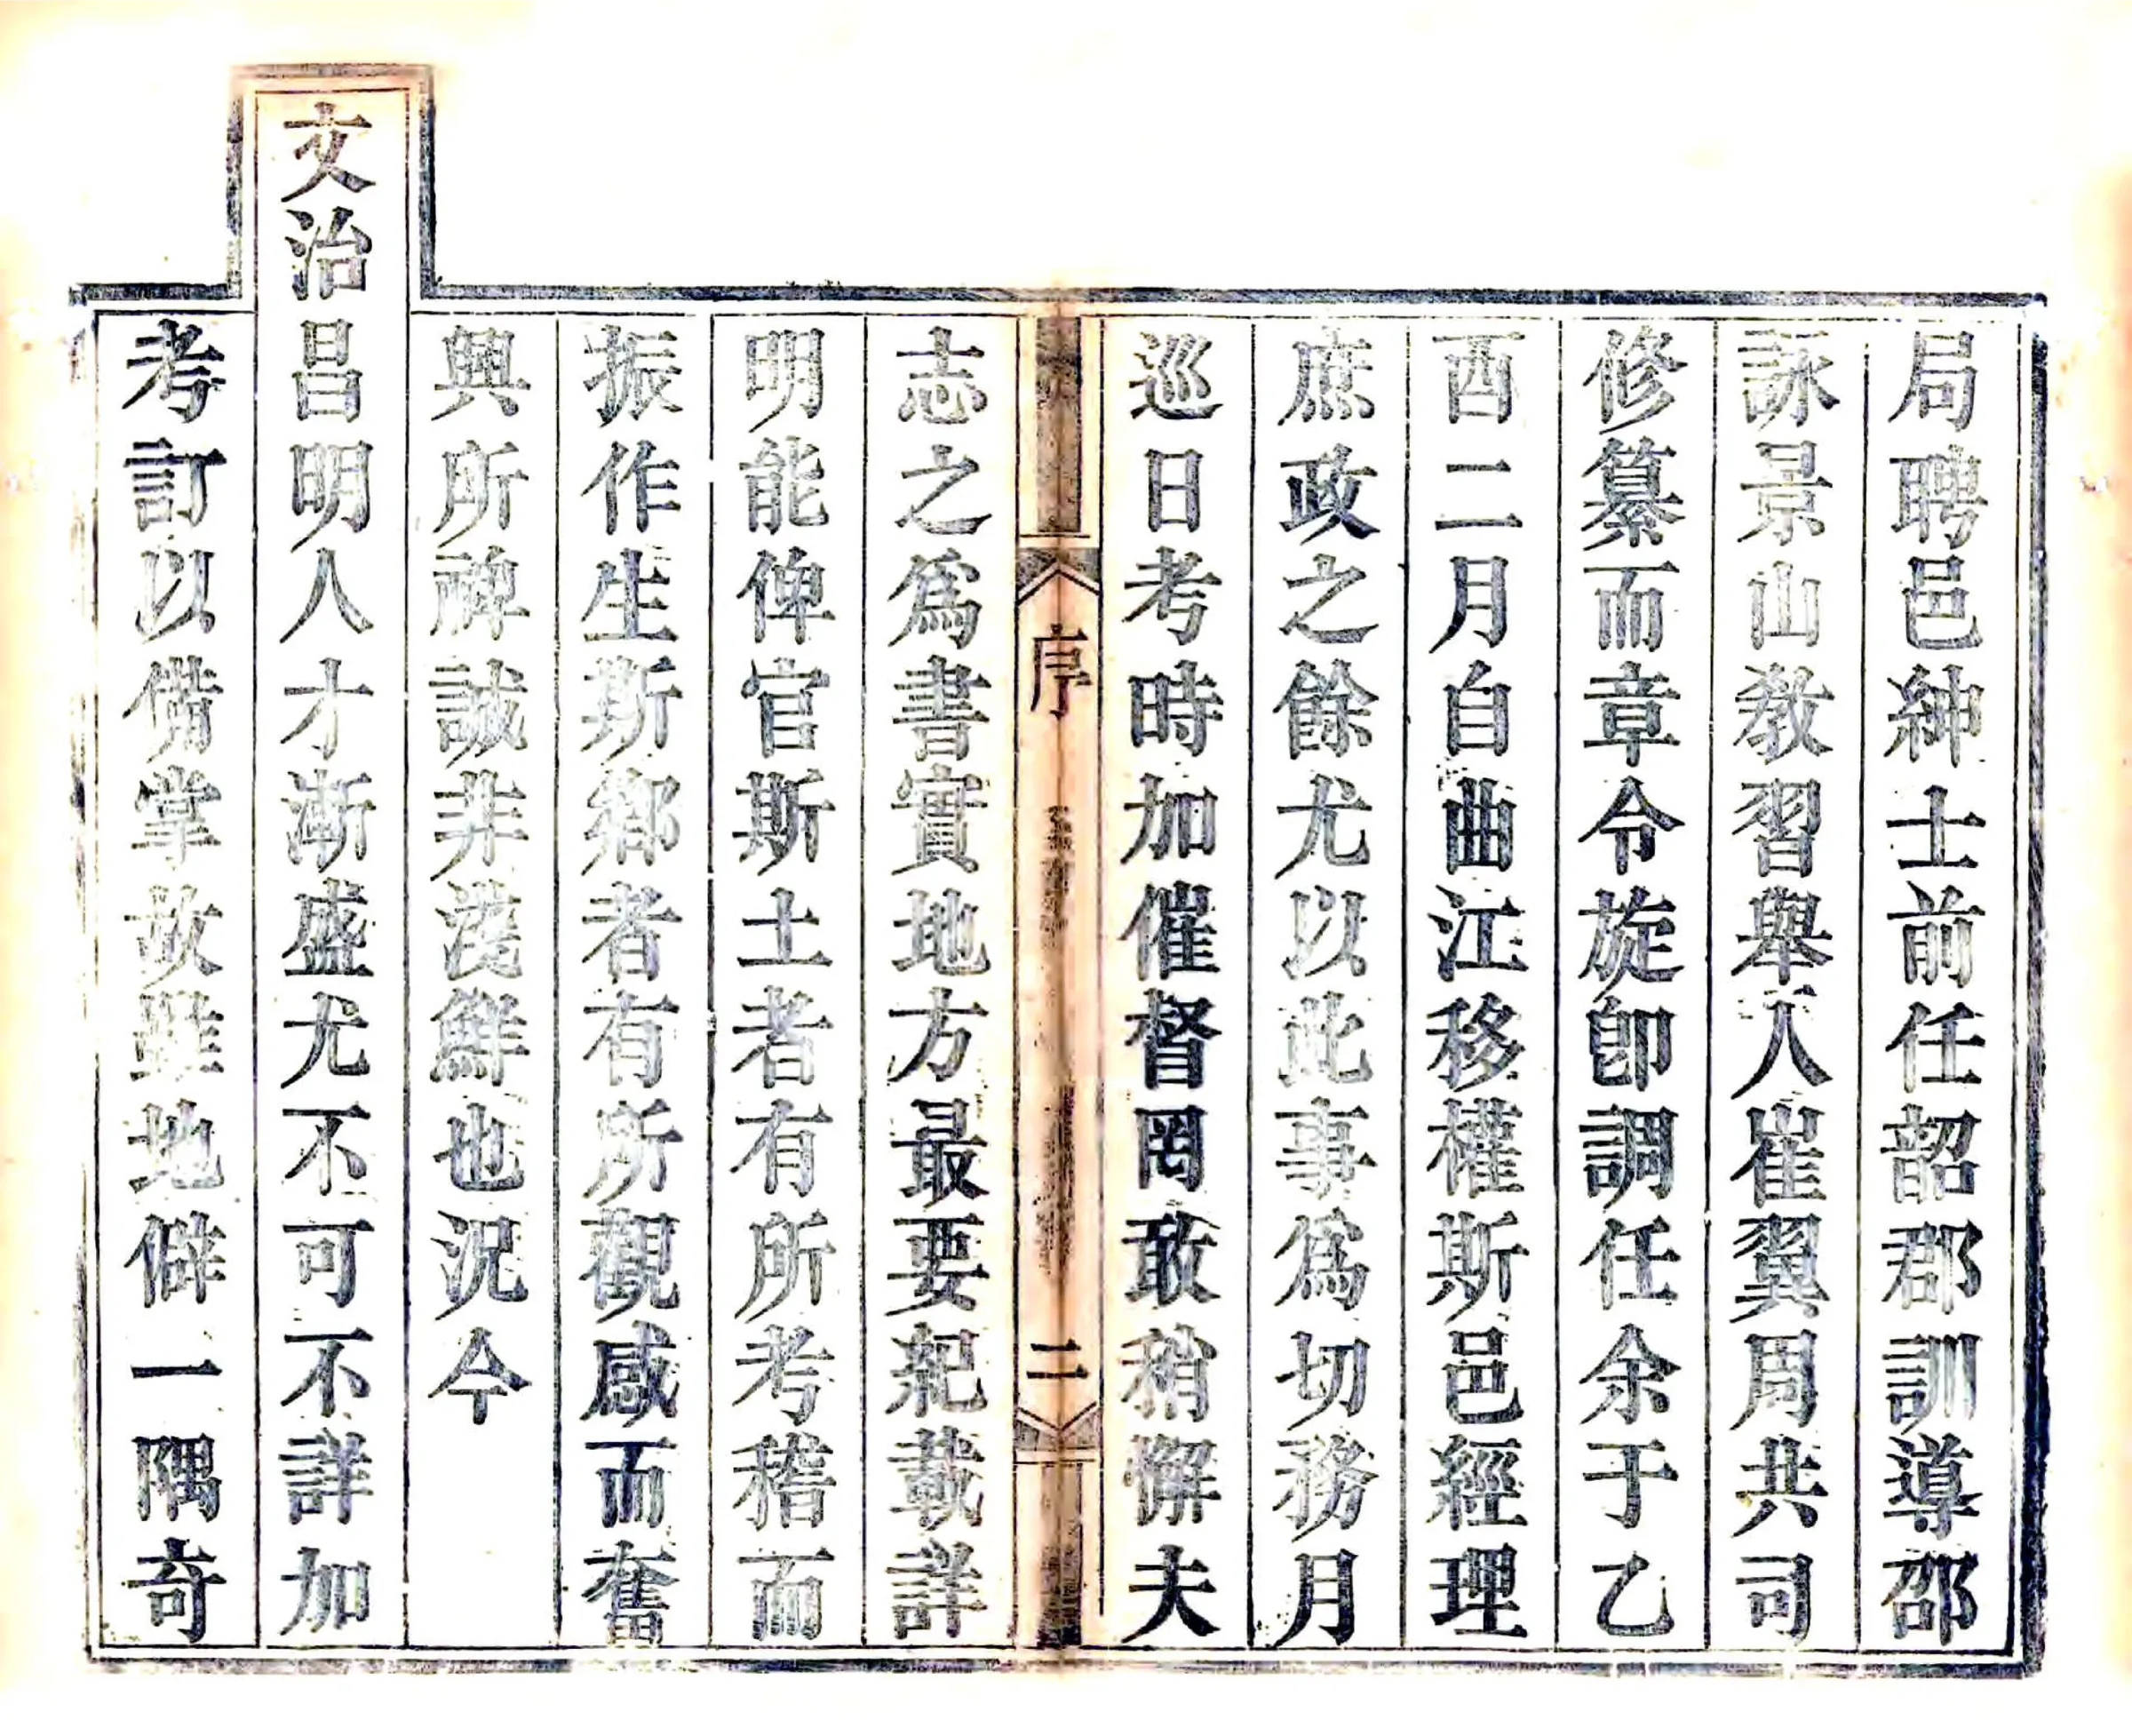 局聘邑紳士前任韶郡訓導邵
詠景山教習舉人崔翼周共司
修纂而章令旋卽調任余于乙
酉二月自曲江移權斯邑經理
庶政之餘尤以此事爲切務月
巡日考時加催督罔敢稍懈夫
序
二
志之爲書實地方最要紀載詳
明能俾官斯土者有所考稽而
振作生斯鄕者有所觀感而奮
興所裨誠非淺鮮也況今
文治昌明人才漸盛尤不可不詳加
考訂以備掌故雖地僻一隅奇